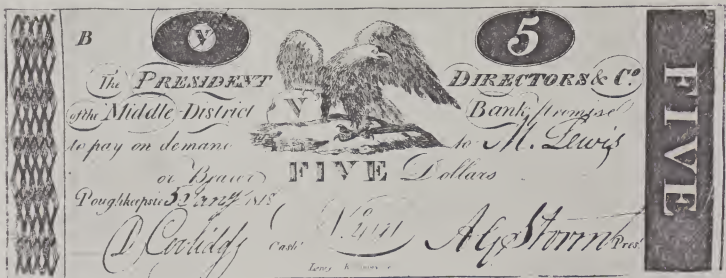 B V 5
The PRESIDENT DIRECTORS & Co.
of the Middle District V Bank promise
to pay on demand to M. Lewis
or Bearer FIVE Dollars
Poughkeepsie 5 Jany 181
D. Coolidge Cashr. A G Storm Pres.
FIVE